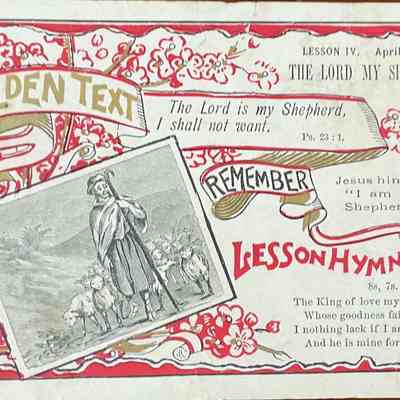 LESSON IV. April
THE LORD MY SH
LDEN TEXT
The Lord is my Shepherd,
I shall not want.
Ps. 23 : 1.
REMEMBER
Jesus him
"I am
Shepher
LESSON HYMN
8s, 7s.
The King of love my
Whose goodness fai
I nothing lack if I a
And he is mine for
R